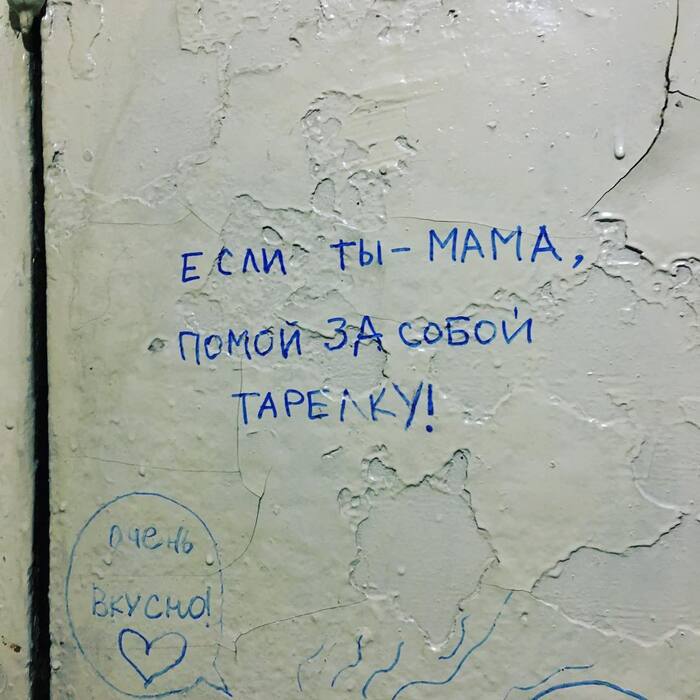 ЕСЛИ ТЫ - МАМА,
ПОМОЙ ЗА СОБОЙ
ТАРЕЛКУ!
ОЧЕНЬ
ВКУСНО!